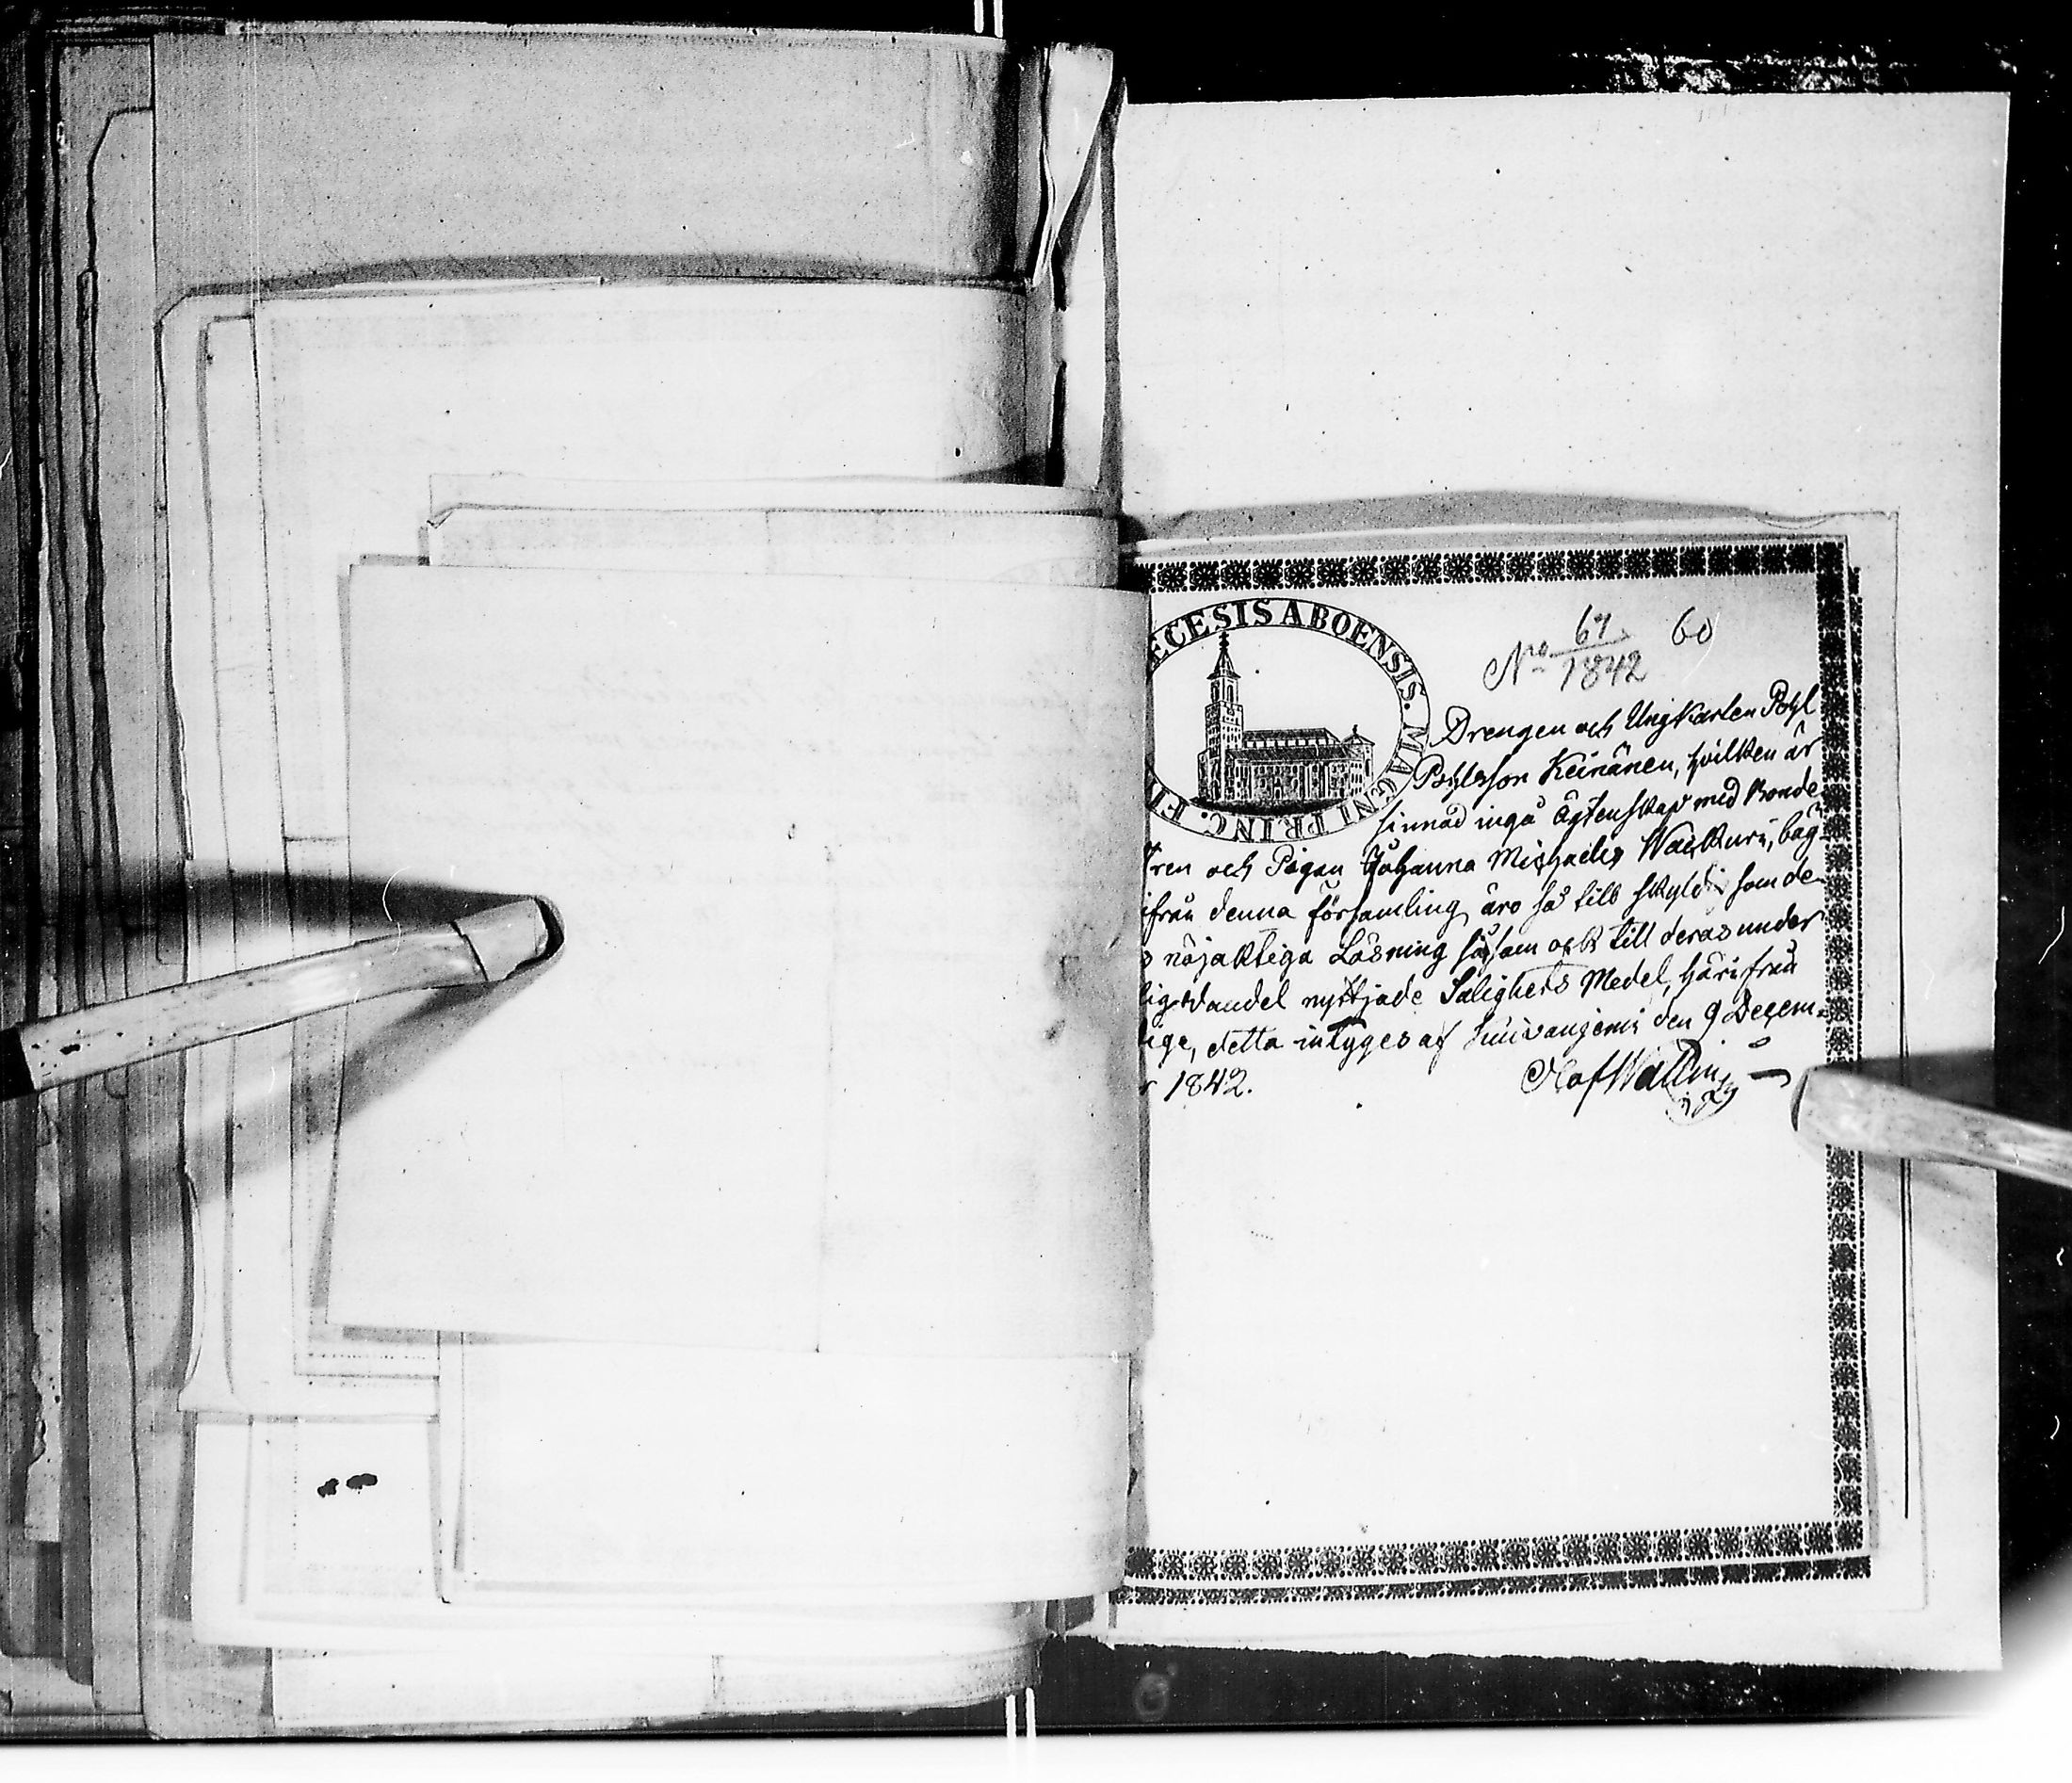 ECESIS ABOENSIS. MAGNI PRINC. FI
No 67/1842 60
Drengen och Ungkarlen Pohl
Pohlsson Keinänen, hvilken är
sinnad ingå Ägtenskap med Bonde
tren och Pigan Johanna Michaelis Waikkuri, bäg
ifrån denna församling, äro så till skyldig som de
s nöjaktiga Läsning såsom ock till deras under
lig Wandel nyttjade Salighets Medel, härifrån
ige, detta intyges af Suivanjemi den 9 Decem-
r 1842.
Olof Wallin